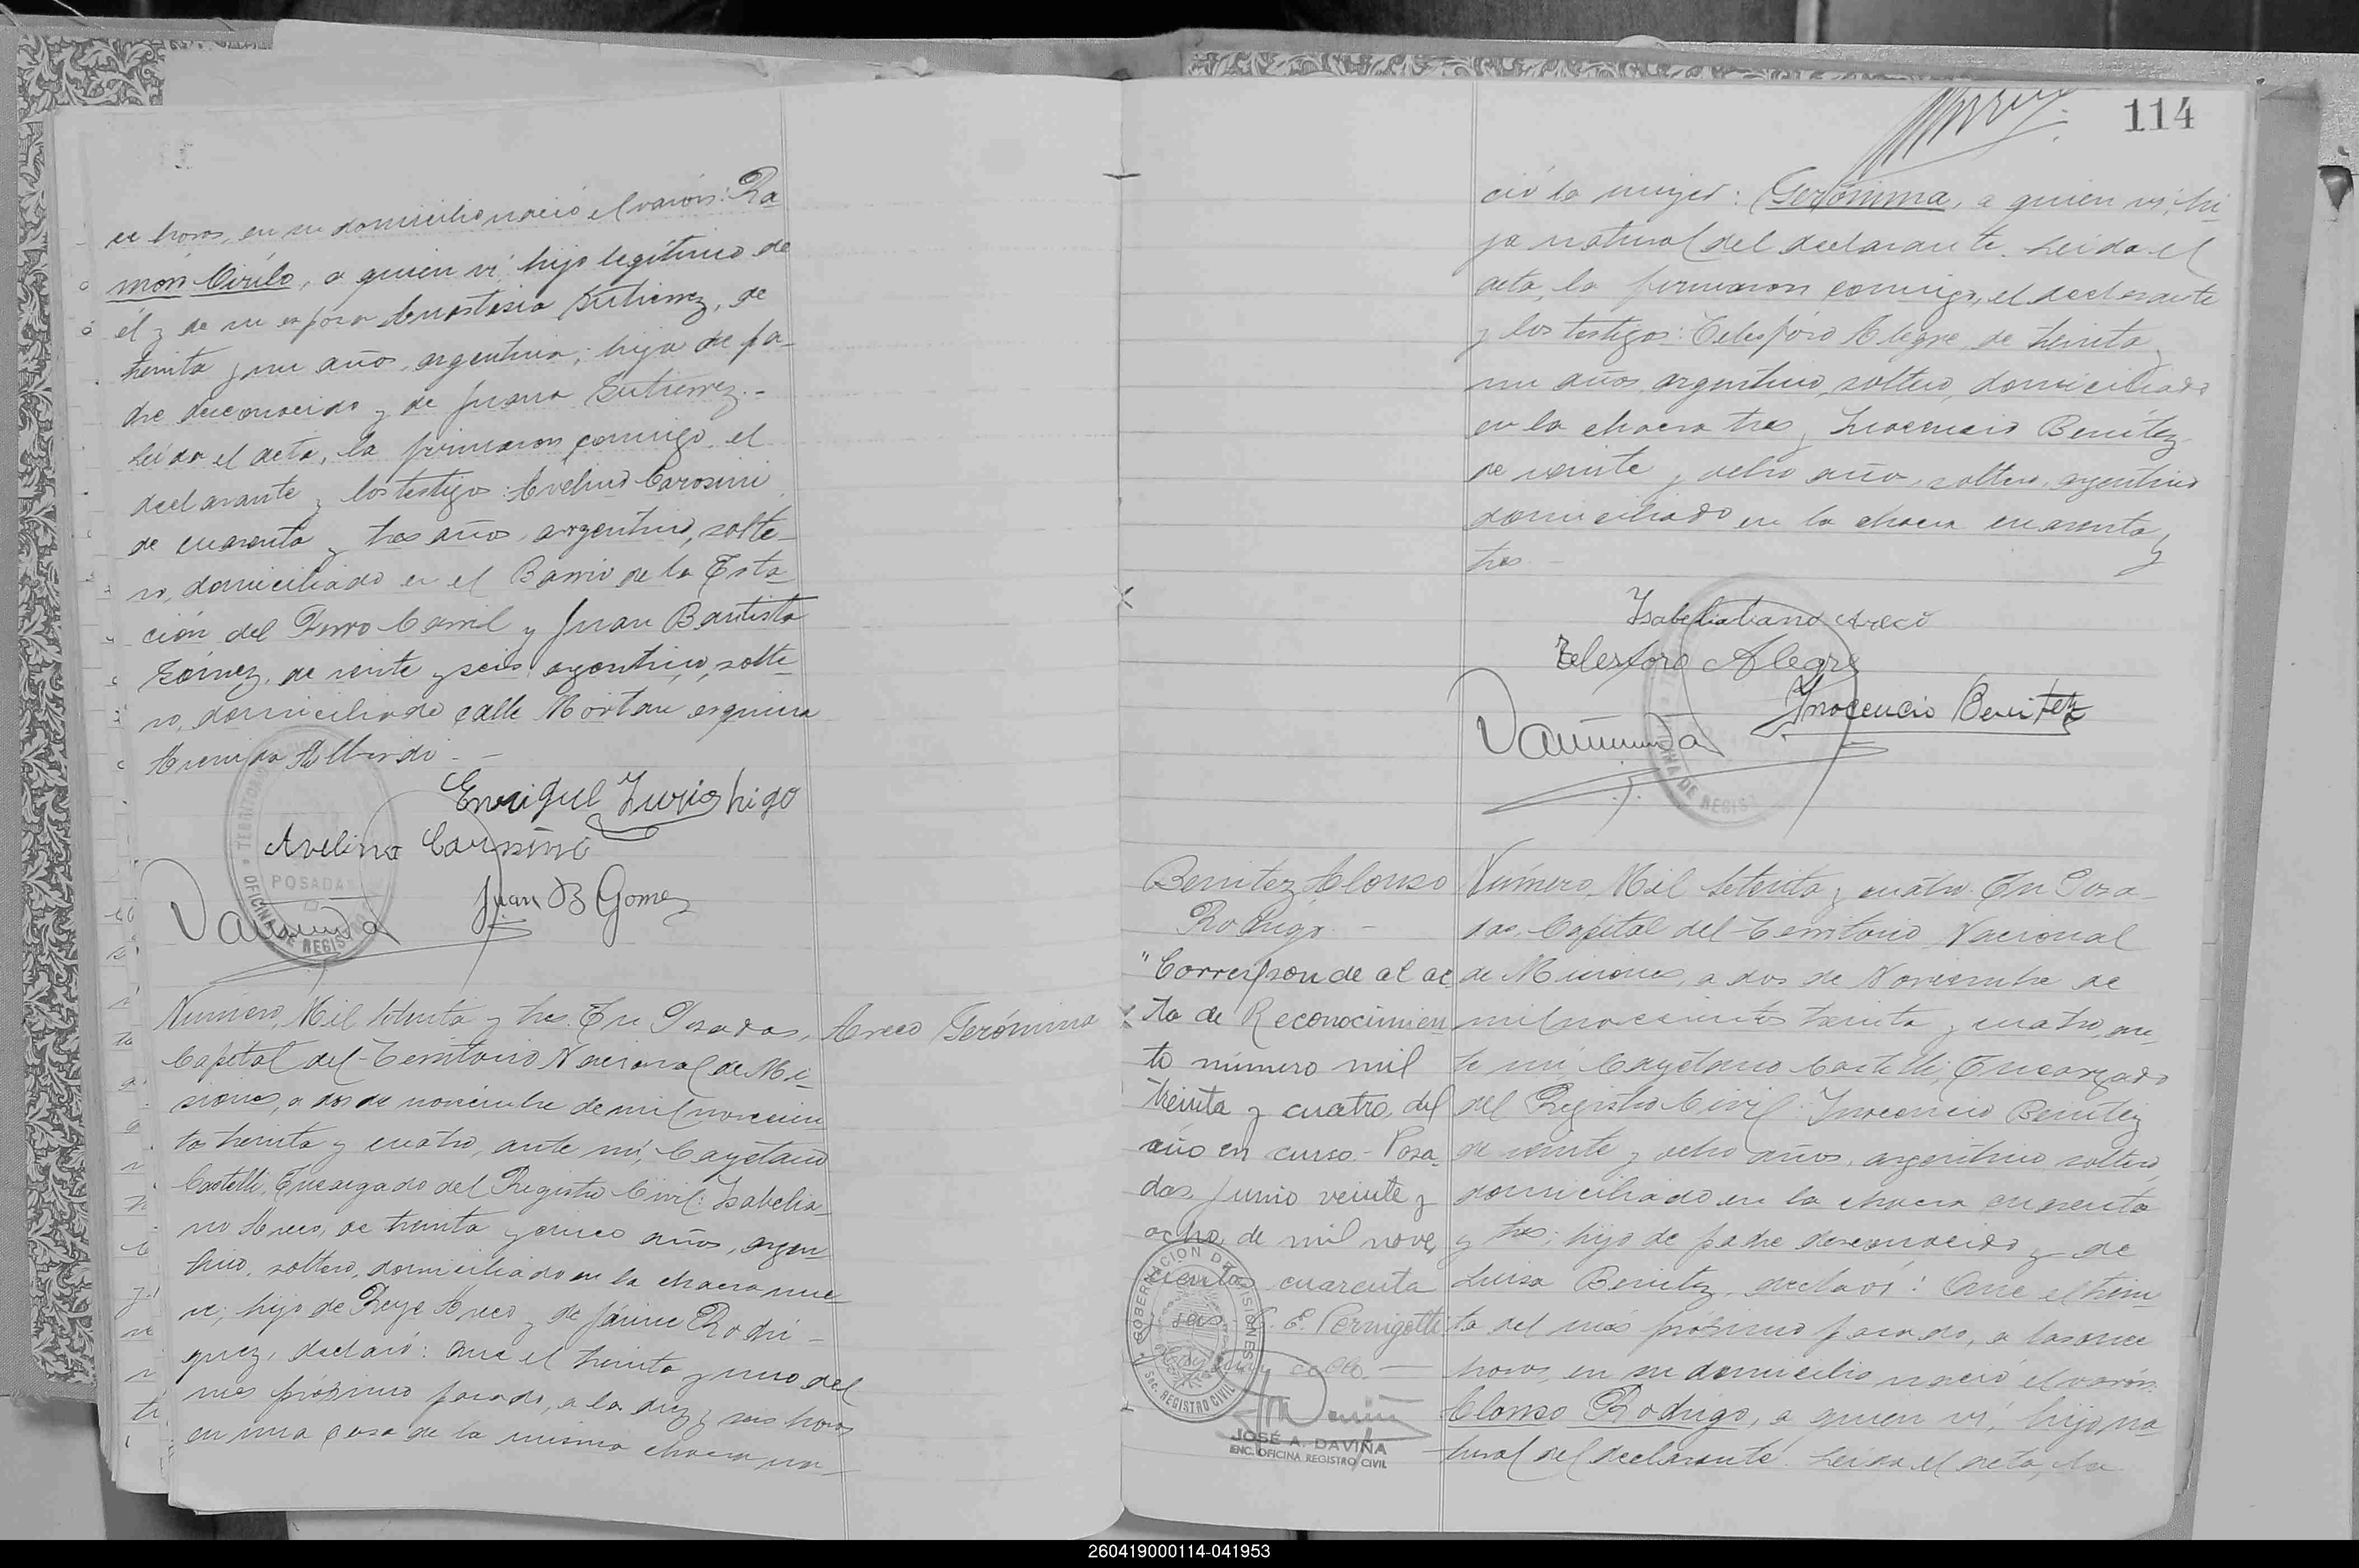 ce horas, en su domicilio nació el varón: Ra
món Cirilo, a quien ví, hijo legítimo de
él y de su esposa Anastasia Gutierrez, de
treinta y un año, argentina; hija de pa-
dre desconocido y de Juana Gutierrez.-
Leída el acta, la firmaron conmigo el
declarante y los testigos: Avelino Carosini
de cuarenta y tres años, argentino, solte-
ro, domiciliado en el Barrio de la Esta-
ción del Ferro Carril y Juan Bautista
Gómez, de veinte y seis, argentino, solte-
ro, domiciliado calle esquina
Avenida Alberdi.-
Enrique
Avelino Carosini
Juan B Gomez
TERRITORIO
POSADAS
OFICINA DE REGISTRO
Areco Gerónima
Número, Mil setenta y tres. En Posadas,
Capital del Territorio Nacional de Mi-
siones, a dos de noviembre de mil novecien
tos treinta y cuatro, ante mí, Cayetano
Castelli, Encargado del Registro Civil: Isabelia-
no Areco, de treinta y cinco años, argen
tino, soltero, domiciliado en la chacra nue
ve; hijo de Reye Areco y de Rodri-
guez, declaró: Que el treinta y uno del
mes próximo pasado, a la diez y seis horas
en una casa de la misma chacra na-
114
ció la mujer: Gerónima, a quien ví, hi
ja natural del declarante. Leída el
acta, la firmaron conmigo, el declarante
y los testigos: Telesforo Alegre de treinta y
un años, argentino, soltero, domiciliado
en la chacra tres y Inocencio Benítez
de veinte y ocho año, soltero, argentino
domiciliado en la chacra cuarenta y
tres.-
Isabeliano Areco
Telesforo Alegre
Inocencio Benitez
OFICINA DE REGISTRO
Benitez Alonso
Rodrigo.-
"Corresponde al ac
ta de Reconocimien
to número mil
treinta y cuatro, del
año en curso.- Posa-
das, Junio veinte y
ocho, de mil nove
cientos cuarenta
y seis. C. E. Pernigotti
GOBERNACION DE MISIONES
SEC. REGISTRO CIVIL
JOSÉ A. DAVIÑA
ENC. OFICINA REGISTRO CIVIL
Número, Mil Setenta y cuatro. En Posa-
das, Capital del Territorio Nacional
de Misiones, a dos de Noviembre de
mil novecientos treinta y cuatro, an-
te mí Cayetano Castelli, Encargado
del Registro Civil: Inocencio Benítez
de veinte y ocho años, argentino soltero,
domiciliado en la chacra cuarenta
y tres; hijo de padre desconocido y de
Luisa Benitez, declaró: Que el trein
ta del mes próximo pasado, a las once
horas, en su domicilio nació el varón:
Alonso Rodrigo, a quien ví, hijo na
tural del declarante. Leída el acta, la
260419000114-041953